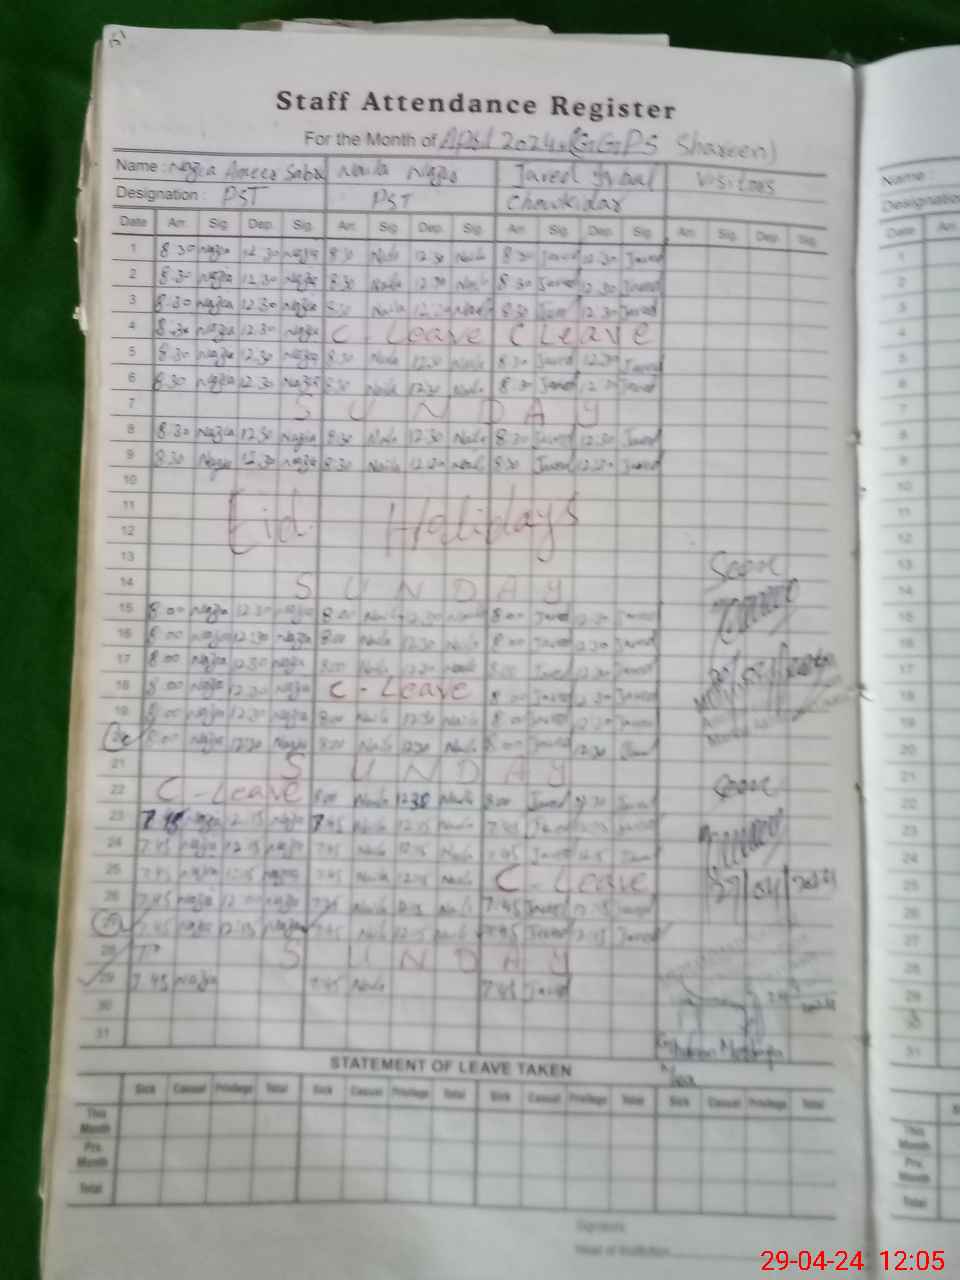 Staff Attendance Register
For the Month of April 2024 (GGPS Shareen)
Name : Nazia Ameer Saba Naila Nazir Javed Iqbal Visitors
Designation : PST PST Chowkidar
Date Arr. Sig. Dep. Sig. Arr. Sig. Dep. Sig. Arr. Sig. Dep. Sig. Arr. Sig. Dep. Sig.
1 8:30 Nazia 12:30 Nazia 8:30 Naila 12:30 Naila 8:30 Javed 12:30 Javed
2 8:30 Nazia 12:30 Nazia 8:30 Naila 12:30 Naila 8:30 Javed 12:30 Javed
3 8:30 Nazia 12:30 Nazia 8:30 Naila 12:30 Naila 8:30 Javed 12:30 Javed
4 8:30 Nazia 12:30 Nazia C - Leave C Leave
5 8:30 Nazia 12:30 Nazia 8:30 Naila 12:30 Naila 8:30 Javed 12:30 Javed
6 8:30 Nazia 12:30 Nazia 8:30 Naila 12:30 Naila 8:30 Javed 12:30 Javed
7 SUNDAY
8 8:30 Nazia 12:30 Nazia 8:30 Naila 12:30 Naila 8:30 Javed 12:30 Javed
9 8:30 Nazia 12:30 Nazia 8:30 Naila 12:30 Naila 8:30 Javed 12:30 Javed
10
11 Eid Holidays
12
13
14 SUNDAY
15 8:00 Nazia 12:30 Nazia 8:00 Naila 12:30 Naila 8:00 Javed 12:30 Javed
16 8:00 Nazia 12:30 Nazia 8:00 Naila 12:30 Naila 8:00 Javed 12:30 Javed
17 8:00 Nazia 12:30 Nazia 8:00 Naila 12:30 Naila 8:00 Javed 12:30 Javed
18 8:00 Nazia 12:30 Nazia C - Leave 8:00 Javed 12:30 Javed
19 8:00 Nazia 12:30 Nazia 8:00 Naila 12:30 Naila 8:00 Javed 12:30 Javed
20 8:00 Nazia 12:30 Nazia 8:00 Naila 12:30 Naila 8:00 Javed 12:30 Javed
21 SUNDAY
22 C - Leave 8:00 Naila 12:30 Naila 8:00 Javed 12:30 Javed
23 7:45 Nazia 12:15 Nazia 7:45 Naila 12:15 Naila 7:45 Javed 12:15 Javed
24 7:45 Nazia 12:15 Nazia 7:45 Naila 12:15 Naila 7:45 Javed 12:15 Javed
25 7:45 Nazia 12:15 Nazia 7:45 Naila 12:15 Naila C - Leave
26 7:45 Nazia 12:00 Nazia 7:45 Naila 12:15 Naila 7:45 Javed 12:15 Javed
27 7:45 Nazia 12:15 Nazia 7:45 Naila 12:15 Naila 7:45 Javed 12:15 Javed
28 SUNDAY
29 7:45 Nazia 7:45 Naila 7:45 Javed
30
31
Seen
Seen
27/04/2024
STATEMENT OF LEAVE TAKEN
Sick Casual Privilege Total Sick Casual Privilege Total Sick Casual Privilege Total Sick Casual Privilege Total
This Month
Prv. Month
Total
Signature
Head of Institution
Name :
Designation
Date Arr.
1
2
3
4
5
6
7
8
9
10
11
12
13
14
15
16
17
18
19
20
21
22
23
24
25
26
27
28
29
30
31
This Month
Prv. Month
Total
29-04-24 12:05